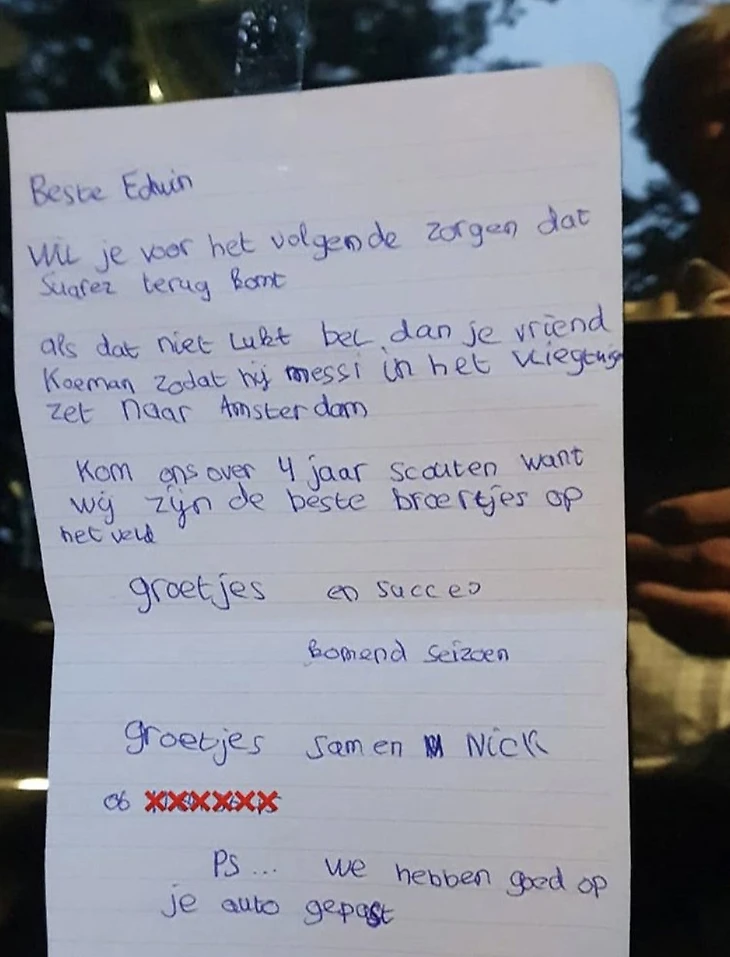 Beste Edwin
Wil je voor het volgende zorgen dat
Suarez terug komt
als dat niet lukt bel dan je vriend
Koeman zodat hij messi in het vliegtuig
zet naar Amsterdam
Kom ons over 4 jaar scouten want
wij zijn de beste broertjes op
het veld
groetjes en succes
komend seizoen
groetjes Sam en Nick
06
PS... we hebben goed op
je auto gepast